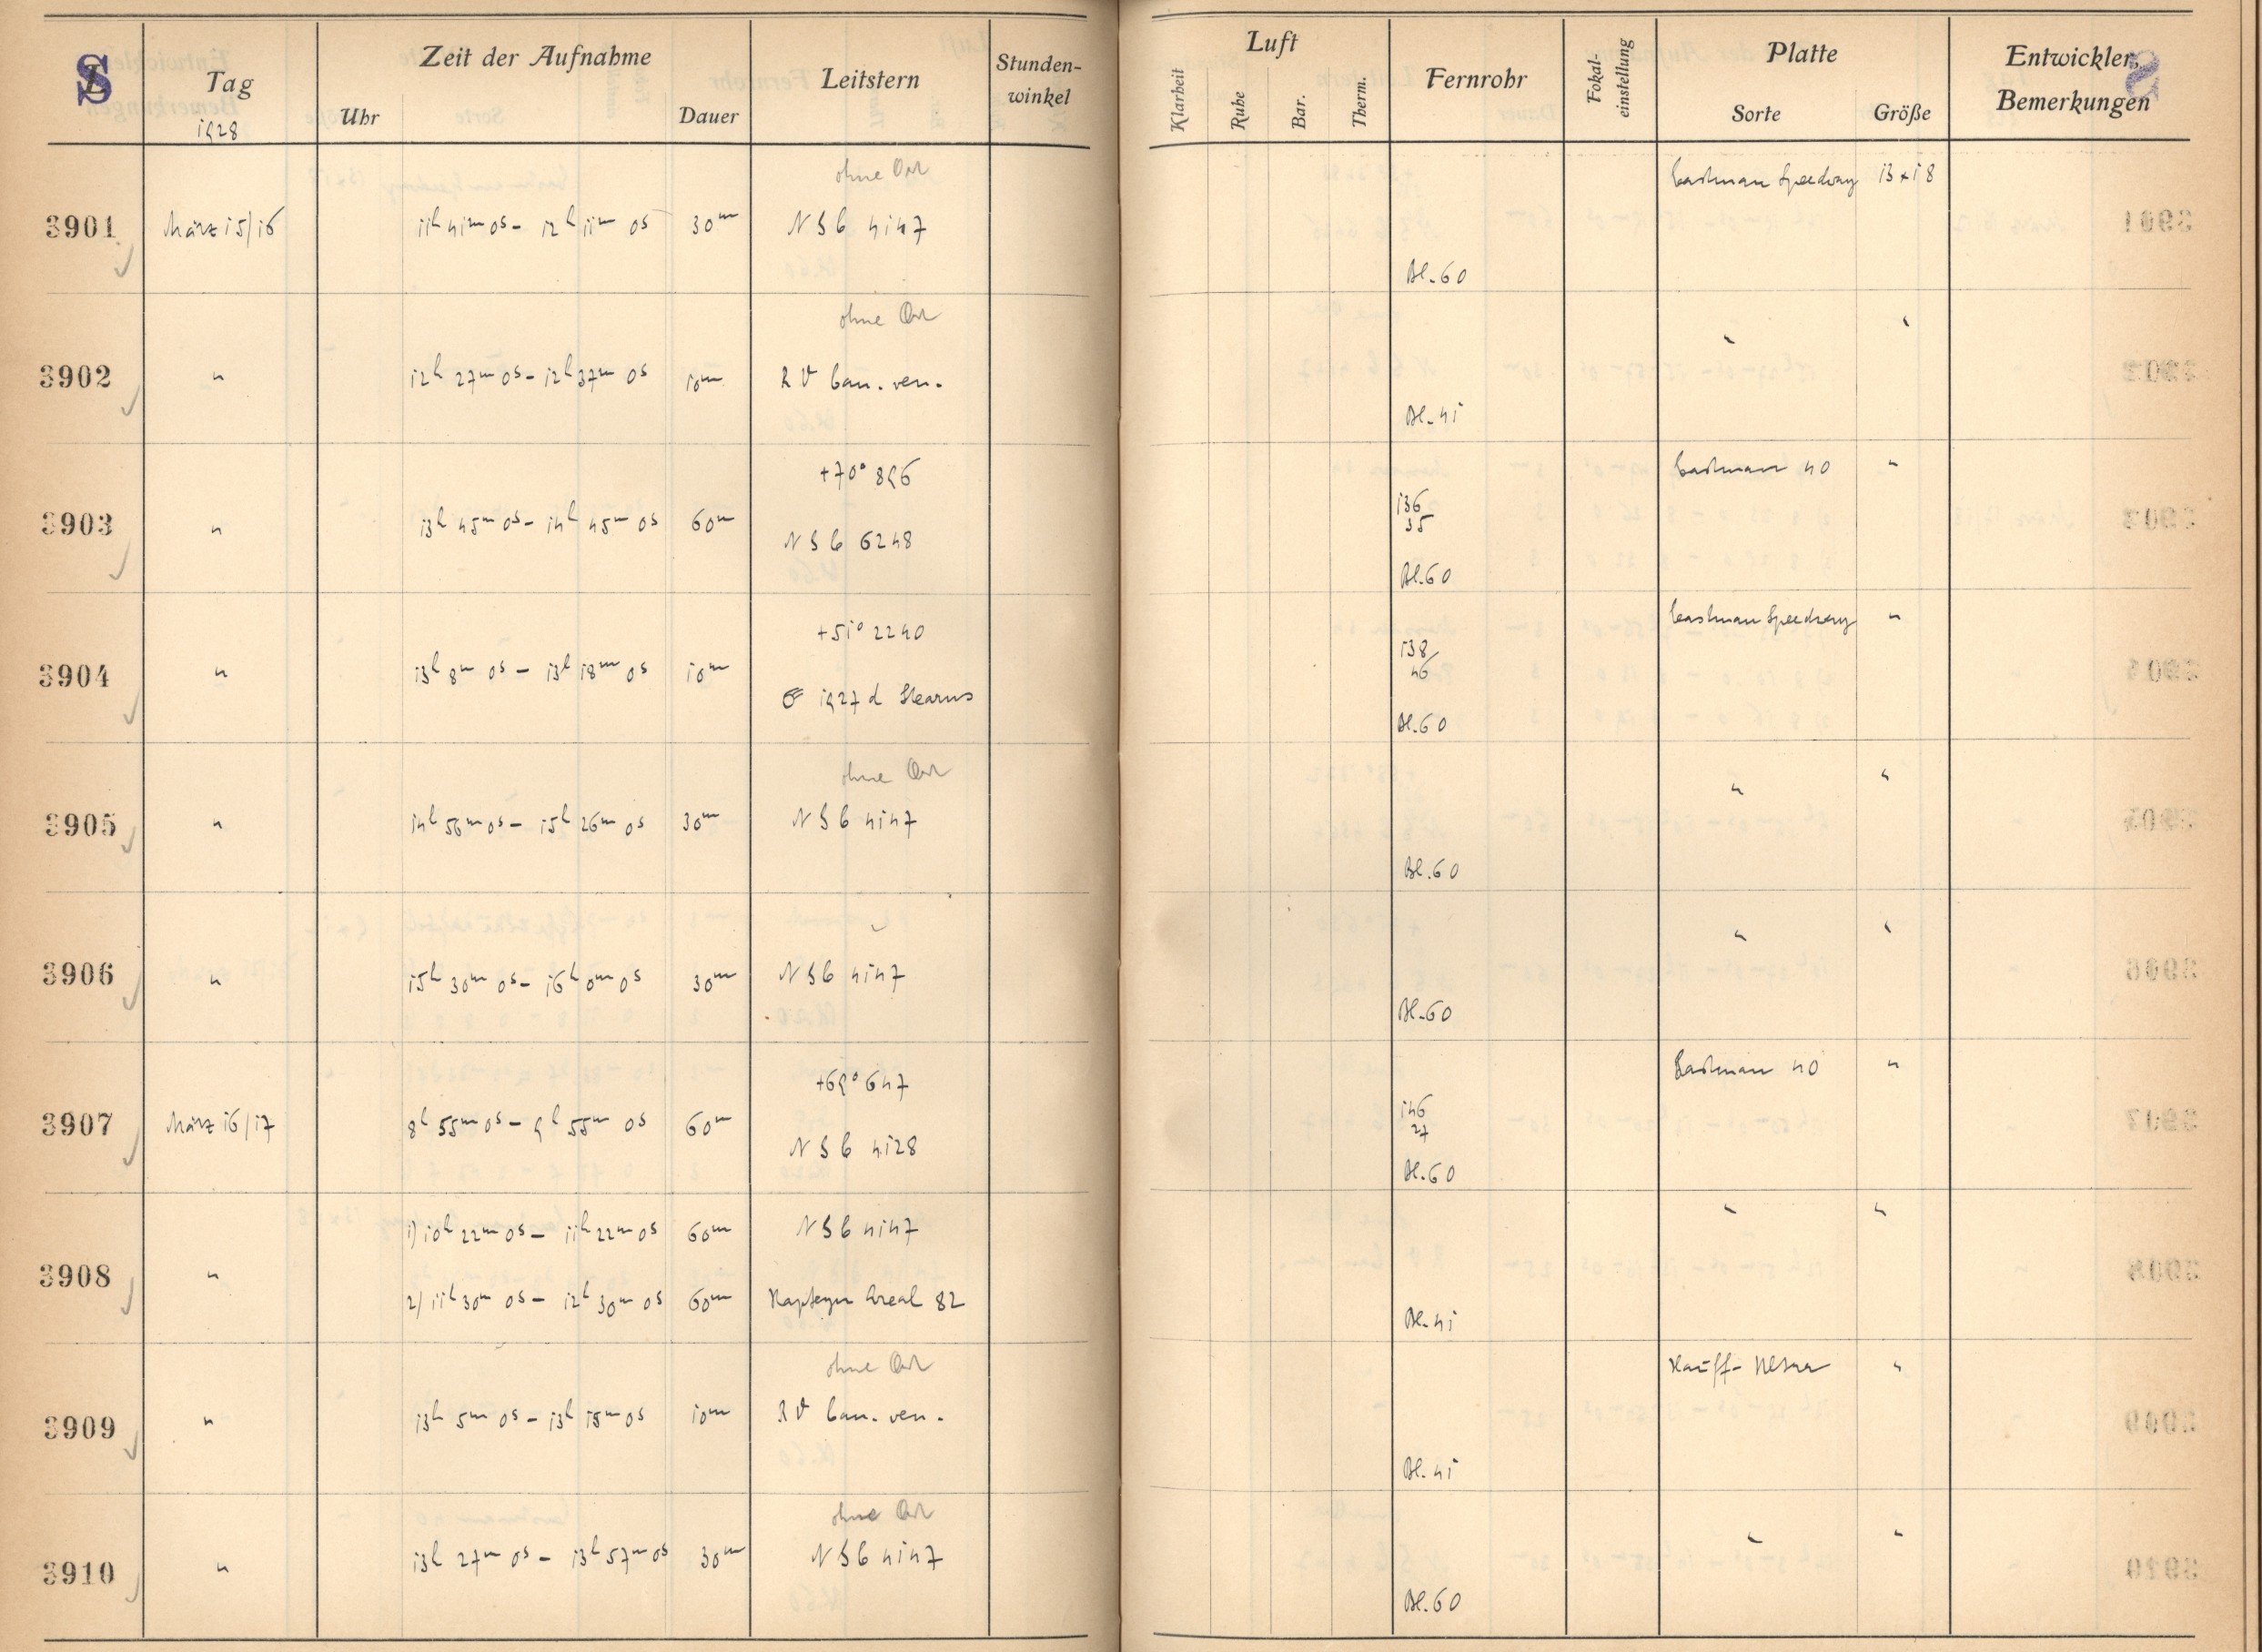 S Tag Zeit der Aufnahme Leitstern Stunden-winkel Luft Fernrohr Fokal-einstellung Platte Entwickler, Bemerkungen
1928 Uhr Dauer Klarheit Ruhe Bar. Therm. Sorte Größe
ohne Ort Eastman Speedway 13x18
3901 März 15/16 11h 41m 0s - 12h 11m 0s 30m NGC 4147
Bl. 60
ohne Ort " "
3902 " 12h 27m 0s - 12h 37m 0s 10m RV Can. ven.
Bl. 41
+70° 896 Eastman 40 "
3903 " 13h 45m 0s - 14h 45m 0s 60m NGC 6248 136
35
Bl. 60
+51° 2240 Eastman Speedway "
3904 " 13h 8m 0s - 13h 18m 0s 10m 1927 d Stearns 138
46
Bl. 60
ohne Ort " "
3905 " 14h 56m 0s - 15h 26m 0s 30m NGC 4147
Bl. 60
" " "
3906 " 15h 30m 0s - 16h 0m 0s 30m NGC 4147
Bl. 60
+69° 647 Eastman 40 "
3907 März 16/17 8h 55m 0s - 9h 55m 0s 60m NGC 4128 146
27
Bl. 60
1) 10h 22m 0s - 11h 22m 0s 60m NGC 4147 " "
3908 "
2) 11h 30m 0s - 12h 30m 0s 60m Kapteyn Areal 82
Bl. 41
ohne Ort Hauff- Ultra "
3909 " 13h 5m 0s - 13h 15m 0s 10m RV Can. ven.
Bl. 41
ohne Ort " "
3910 " 13h 27m 0s - 13h 57m 0s 30m NGC 4147
Bl. 60